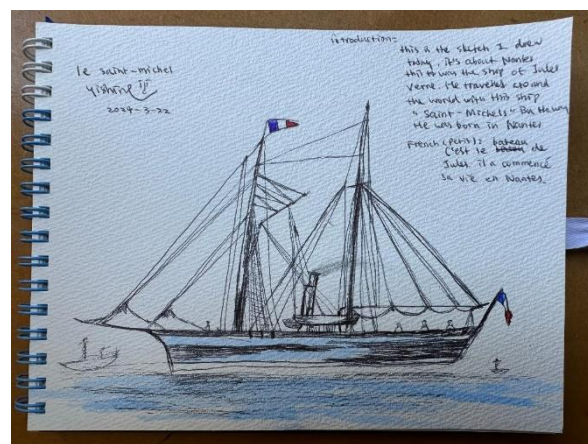 le saint-michel
Yishing
2024-3-22
introduction:
this is the sketch I drew
today. it's about Nantes
this was the ship of Jules
Verne. He travelled around
the world with this ship
"Saint-Michels" By the way
He was born in Nantes
French (petit): bateau
C'est le de
Jules il a commencé
sa vie en Nantes.